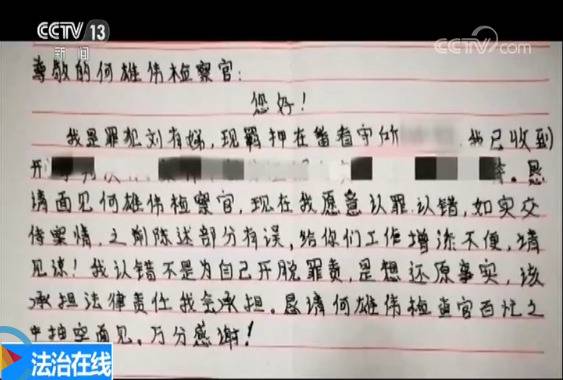 CCTV 13
新闻
CCTV.com
尊敬的何雄伟检察官:
您好!
我是罪犯刘有娣,现羁押在看守所 我已收到
开 。恳
请面见何雄伟检察官,现在我愿意认罪认错,如实交
待案情,之前陈述部分有误,给你们工作增添不便,请
见谅!我认错不是为自己开脱罪责,是想还原事实,该
承担法律责任我会承担。恳请何雄伟检查官百忙之
中抽空面见。万分感谢!
法治在线